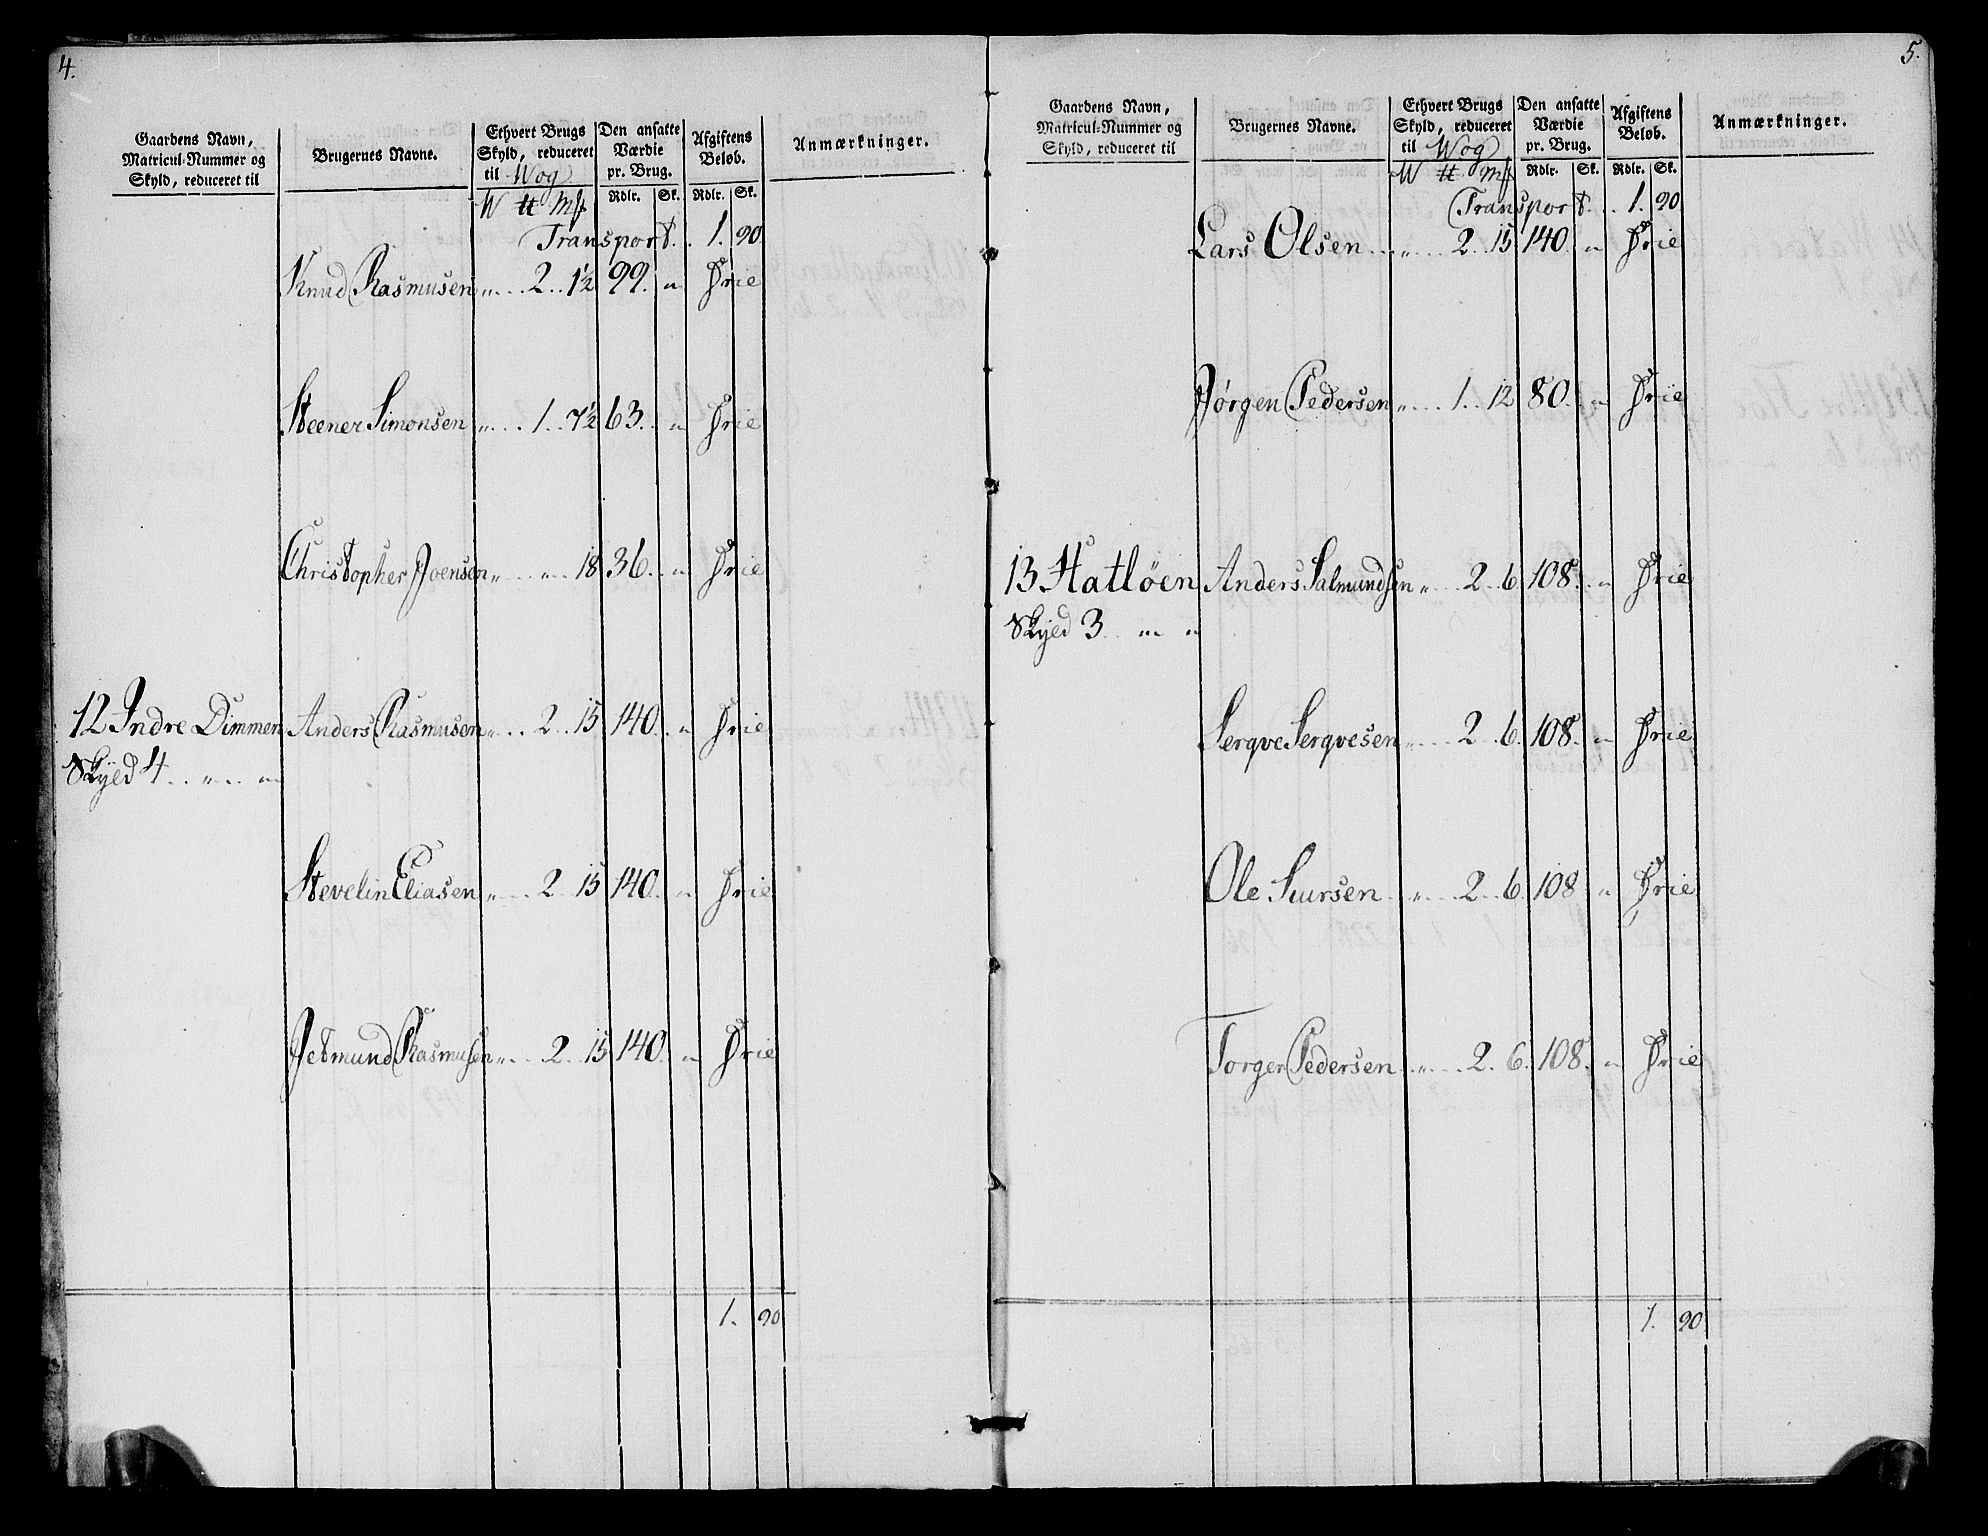 4.
Gaardens Navn, Matricul-Nummer og Skyld, reduceret til
Brugernes Navne.
Ethvert Brugs Skyld, reduceret til Wog
W ℔ Mk
Den ansatte Værdie pr. Brug.
Rdlr. Sk.
Afgiftens Beløb.
Rdlr. Sk.
Anmærkninger.
Transport. . 1. 90
Knud Rasmusen „ . . . 2 . . 1½ 99. „ Frie
Steener Simonsen „ . . . 1 . . 7½ 63. . „ Frie
Christopher Joensen „ . . . „ . . 18 36. . „ Frie
12 Indre Dimmen Anders Rasmusen „ . . . 2 . . 15 140. . „ Frie
Skyld 4 . . „ . . „
Stevelin Eliasen „ . . . 2 . . 15 140. . „ Frie
Jetmund Rasmusen „ . . . 2 . . 15 140. . „ Frie
1. 90
5.
Gaardens Navn, Matricul-Nummer og Skyld, reduceret til
Brugernes Navne.
Ethvert Brugs Skyld, reduceret til Wog
W ℔ Mk
Den ansatte Værdie pr. Brug.
Rdlr. Sk.
Afgiftens Beløb.
Rdlr. Sk.
Anmærkninger.
Transport. . 1. 90
Lars Olsen . . . „ . . . 2 . . 15 140. . „ Frie
Jørgen Pedersen „ . . . 1 . . 12 80. . „ Frie
13 Hatløen Anders Salmundsen „ . . . 2 . . 6 108. . „ Frie
Skyld 3 . . „ „
Serqve Serqvesen „ . . . 2 . . 6. 108. . „ Frie
Ole Suursen . . „ . . . 2 . . 6. 108 „ Frie
Torger Pedersen . . „ . . . 2 . . 6. 108. . „ Frie
1. 90